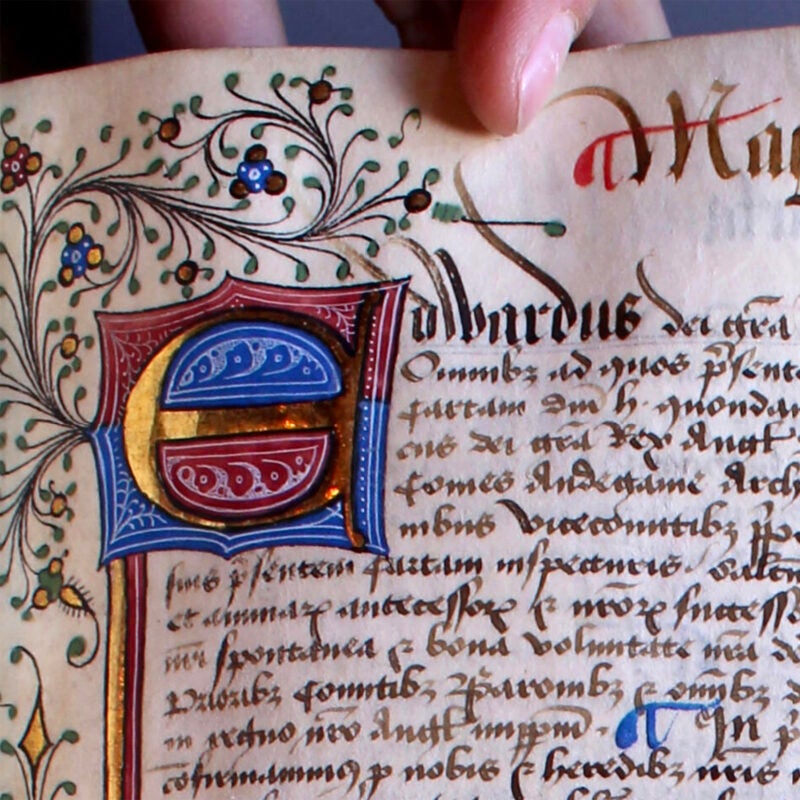 Mag
Edwardus dei gr̄a
Omnibȝ ad quos p̄sent
cartam dn̄i h. quondam
cus dei gr̄a Rex Angl
Comes Andegauie Arch
nibus vicecomitibȝ
suis p̄sentem cartam inspecturis. Salt̄m
et animaꝝ antecessoꝝ ⁊ nr̄oꝝ success
mr̄i spontanea ⁊ bona voluntate nr̄a de
Prioribȝ Comitibȝ Baronibȝ ⁊ om̄ibȝ d
in regno nr̄o Angl imppm̄. In
cōfirmauimus p nobis ⁊ heredibȝ nr̄is